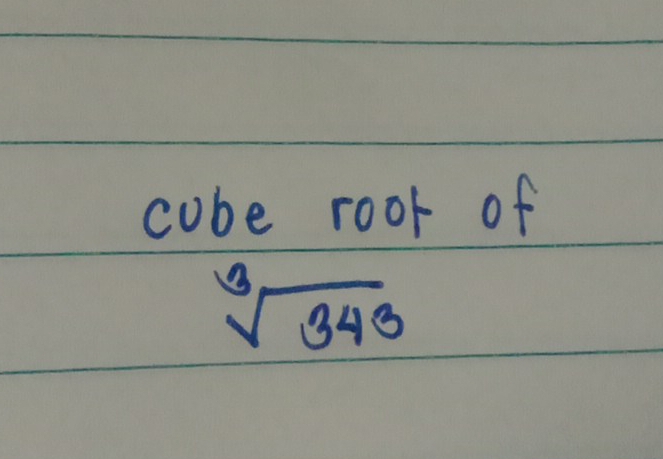 cube root of
∛343